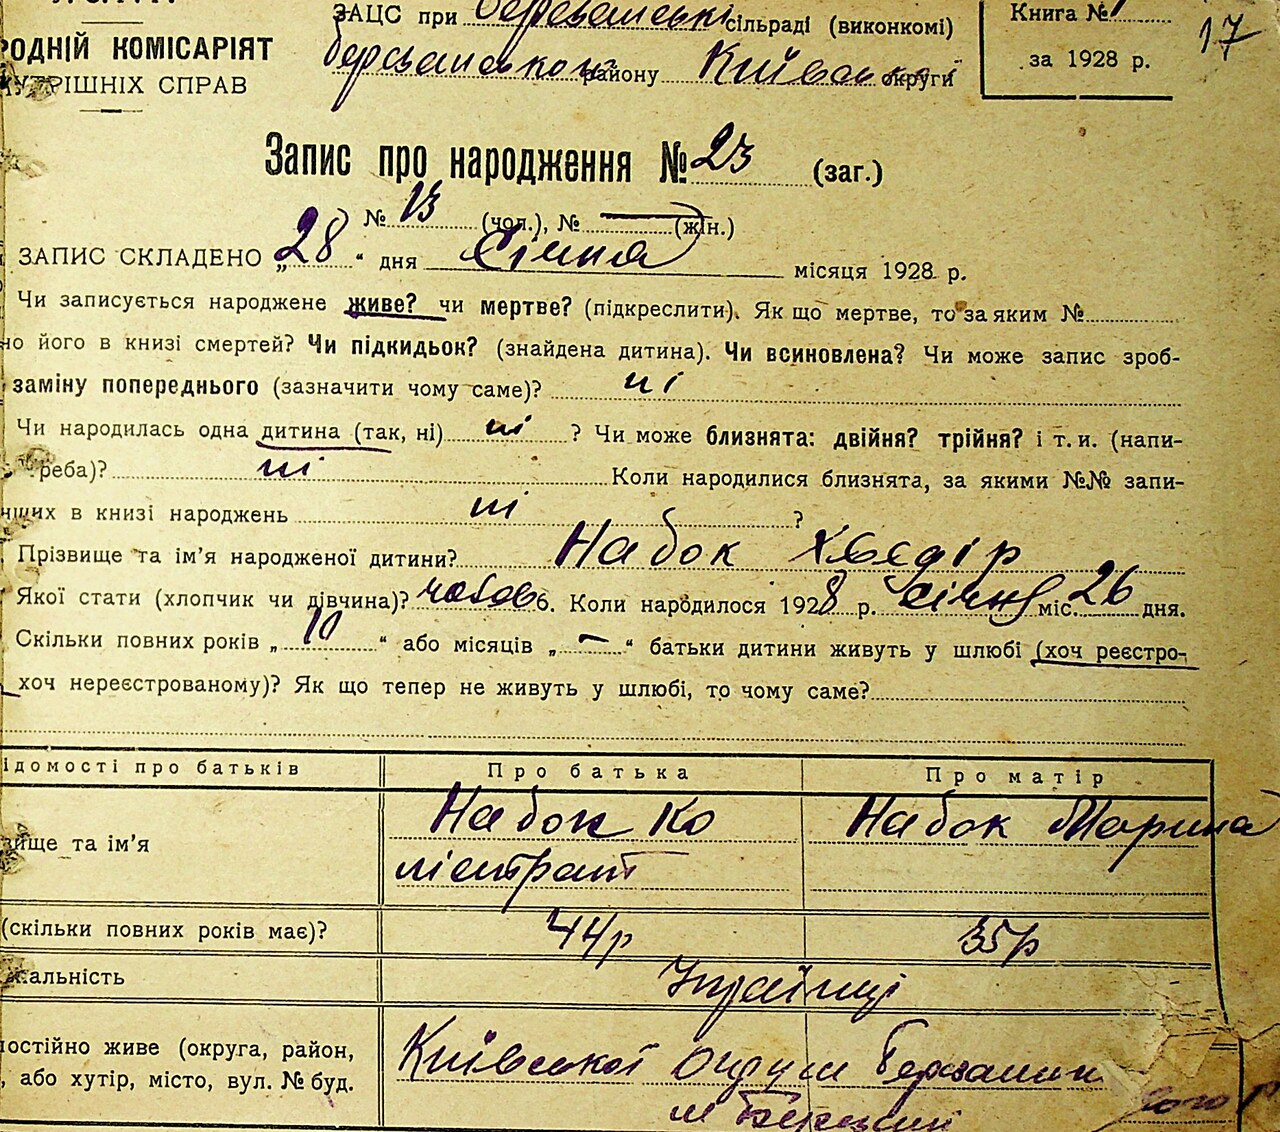 ЗАЦС при Березанські сільраді (виконкомі)
Книга №1
17
РОДНІЙ КОМІСАРІЯТ
березанського району Київської округи
за 1928 р.
УТРІШНІХ СПРАВ
Запис про народження № 23 (заг.)
№ 13 (чол.), № — (жін.)
ЗАПИС СКЛАДЕНО „28“ дня Січня місяця 1928 р.
Чи записується народжене живе? чи мертве? (підкреслити). Як що мертве, то за яким №
но його в книзі смертей? Чи підкидьок? (знайдена дитина). Чи всиновлена? Чи може запис зроб-
заміну попереднього (зазначити чому саме)? ні
Чи народилась одна дитина (так, ні) ні ? Чи може близнята: двійня? трійня? і т. и. (напи-
реба)? ні Коли народилися близнята, за якими №№ запи-
нших в книзі народжень ні ?
Прізвище та ім'я народженої дитини? Набок Хведір
Якої стати (хлопчик чи дівчина)? чолов б. Коли народилося 1928 р. січня міс. 26 дня.
Скільки повних років „10“ або місяців „—“ батьки дитини живуть у шлюбі (хоч реєстро-
хоч нереєстрованому)? Як що тепер не живуть у шлюбі, то чому саме?
ідомості про батьків Про батька Про матір
вище та ім'я Набок Ко Набок Марина
лістрат
(скільки повних років має)? 44р 35р
нальність Українці
постійно живе (округа, район, Київської округи Березанськ
ого р
, або хутір, місто, вул. № буд. м Березань